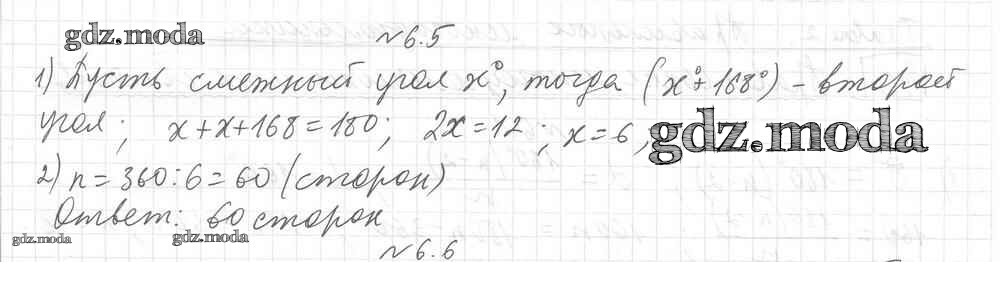 gdz.moda
№6.5
1) Пусть смежный угол x°, тогда (x°+168°) - второй
угол; x+x+168=180; 2x=12; x=6, gdz.moda
2) n=360:6=60 (сторон)
Ответ: 60 сторон
gdz.moda gdz.moda
№6.6